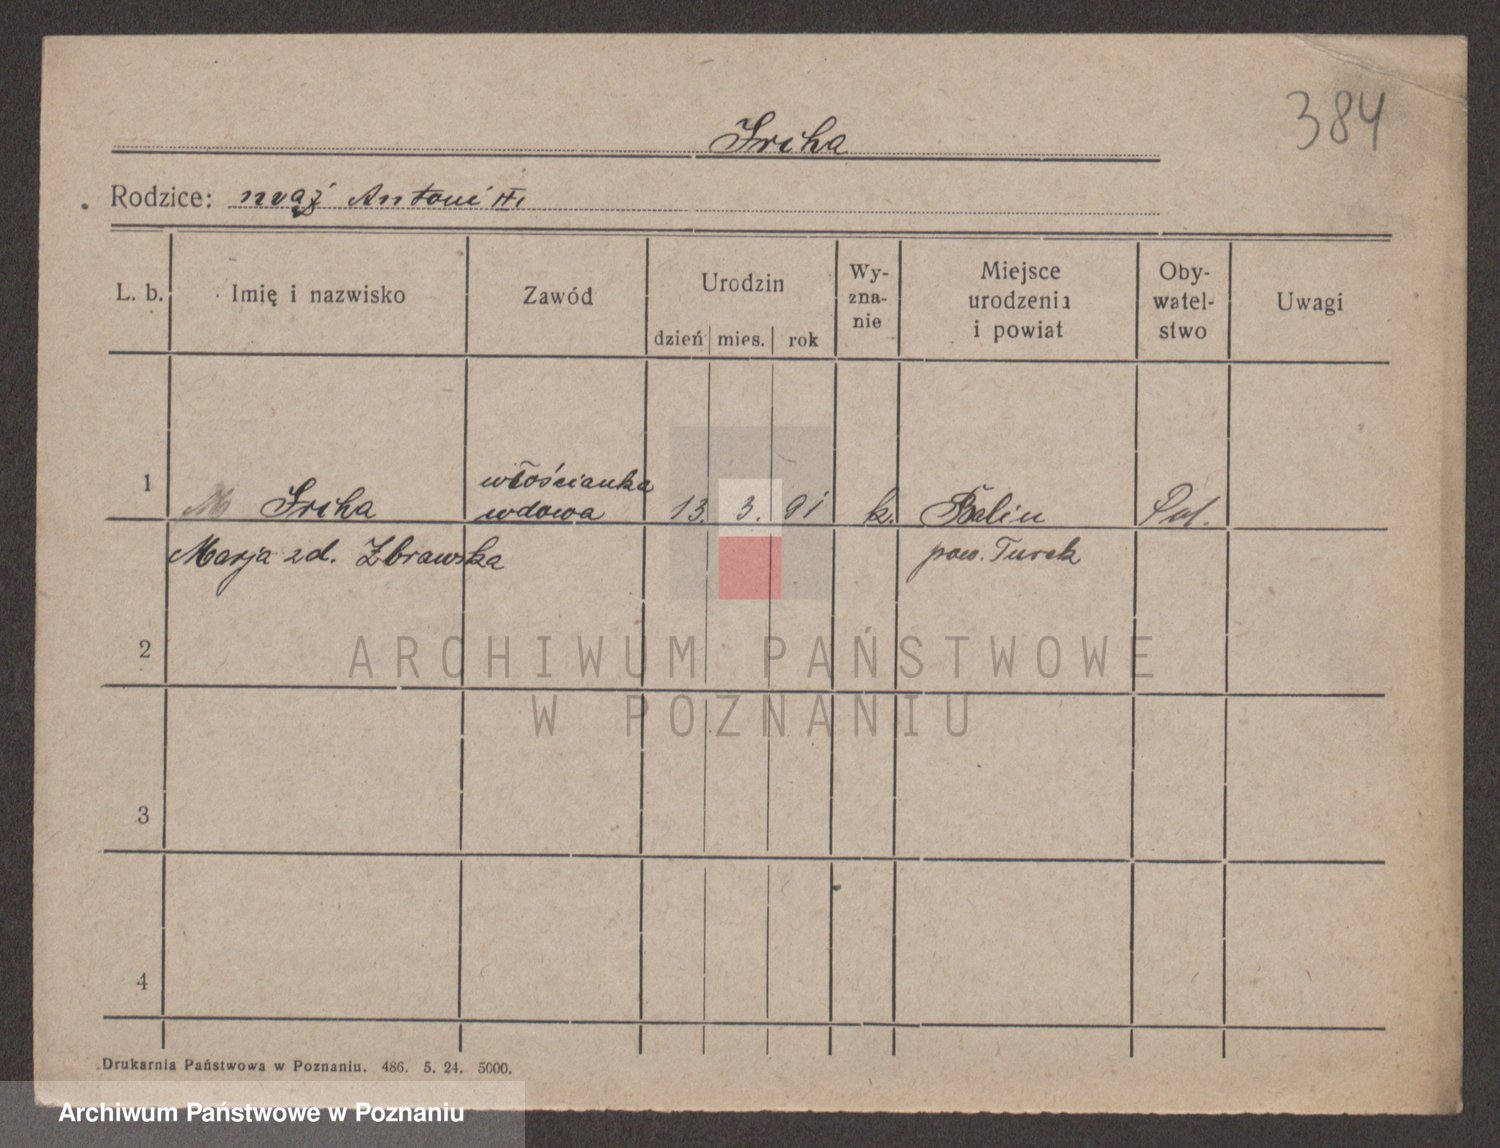 384
Sroka
Rodzice: mąż Antoni
L. b. Imię i nazwisko Zawód Urodzin dzień mies. rok Wy-zna-nie Miejsce urodzenia i powiat Oby-watel-stwo Uwagi
włościanka
1 wdowa 13. 3. 91 k. Balin Pol.
Marja zd. pow. Turek
2
3
4
Drukarnia Państwowa w Poznaniu. 486. 5. 24. 5000.
ARCHIWUM PAŃSTWOWE
W POZNANIU
Archiwum Państwowe w Poznaniu